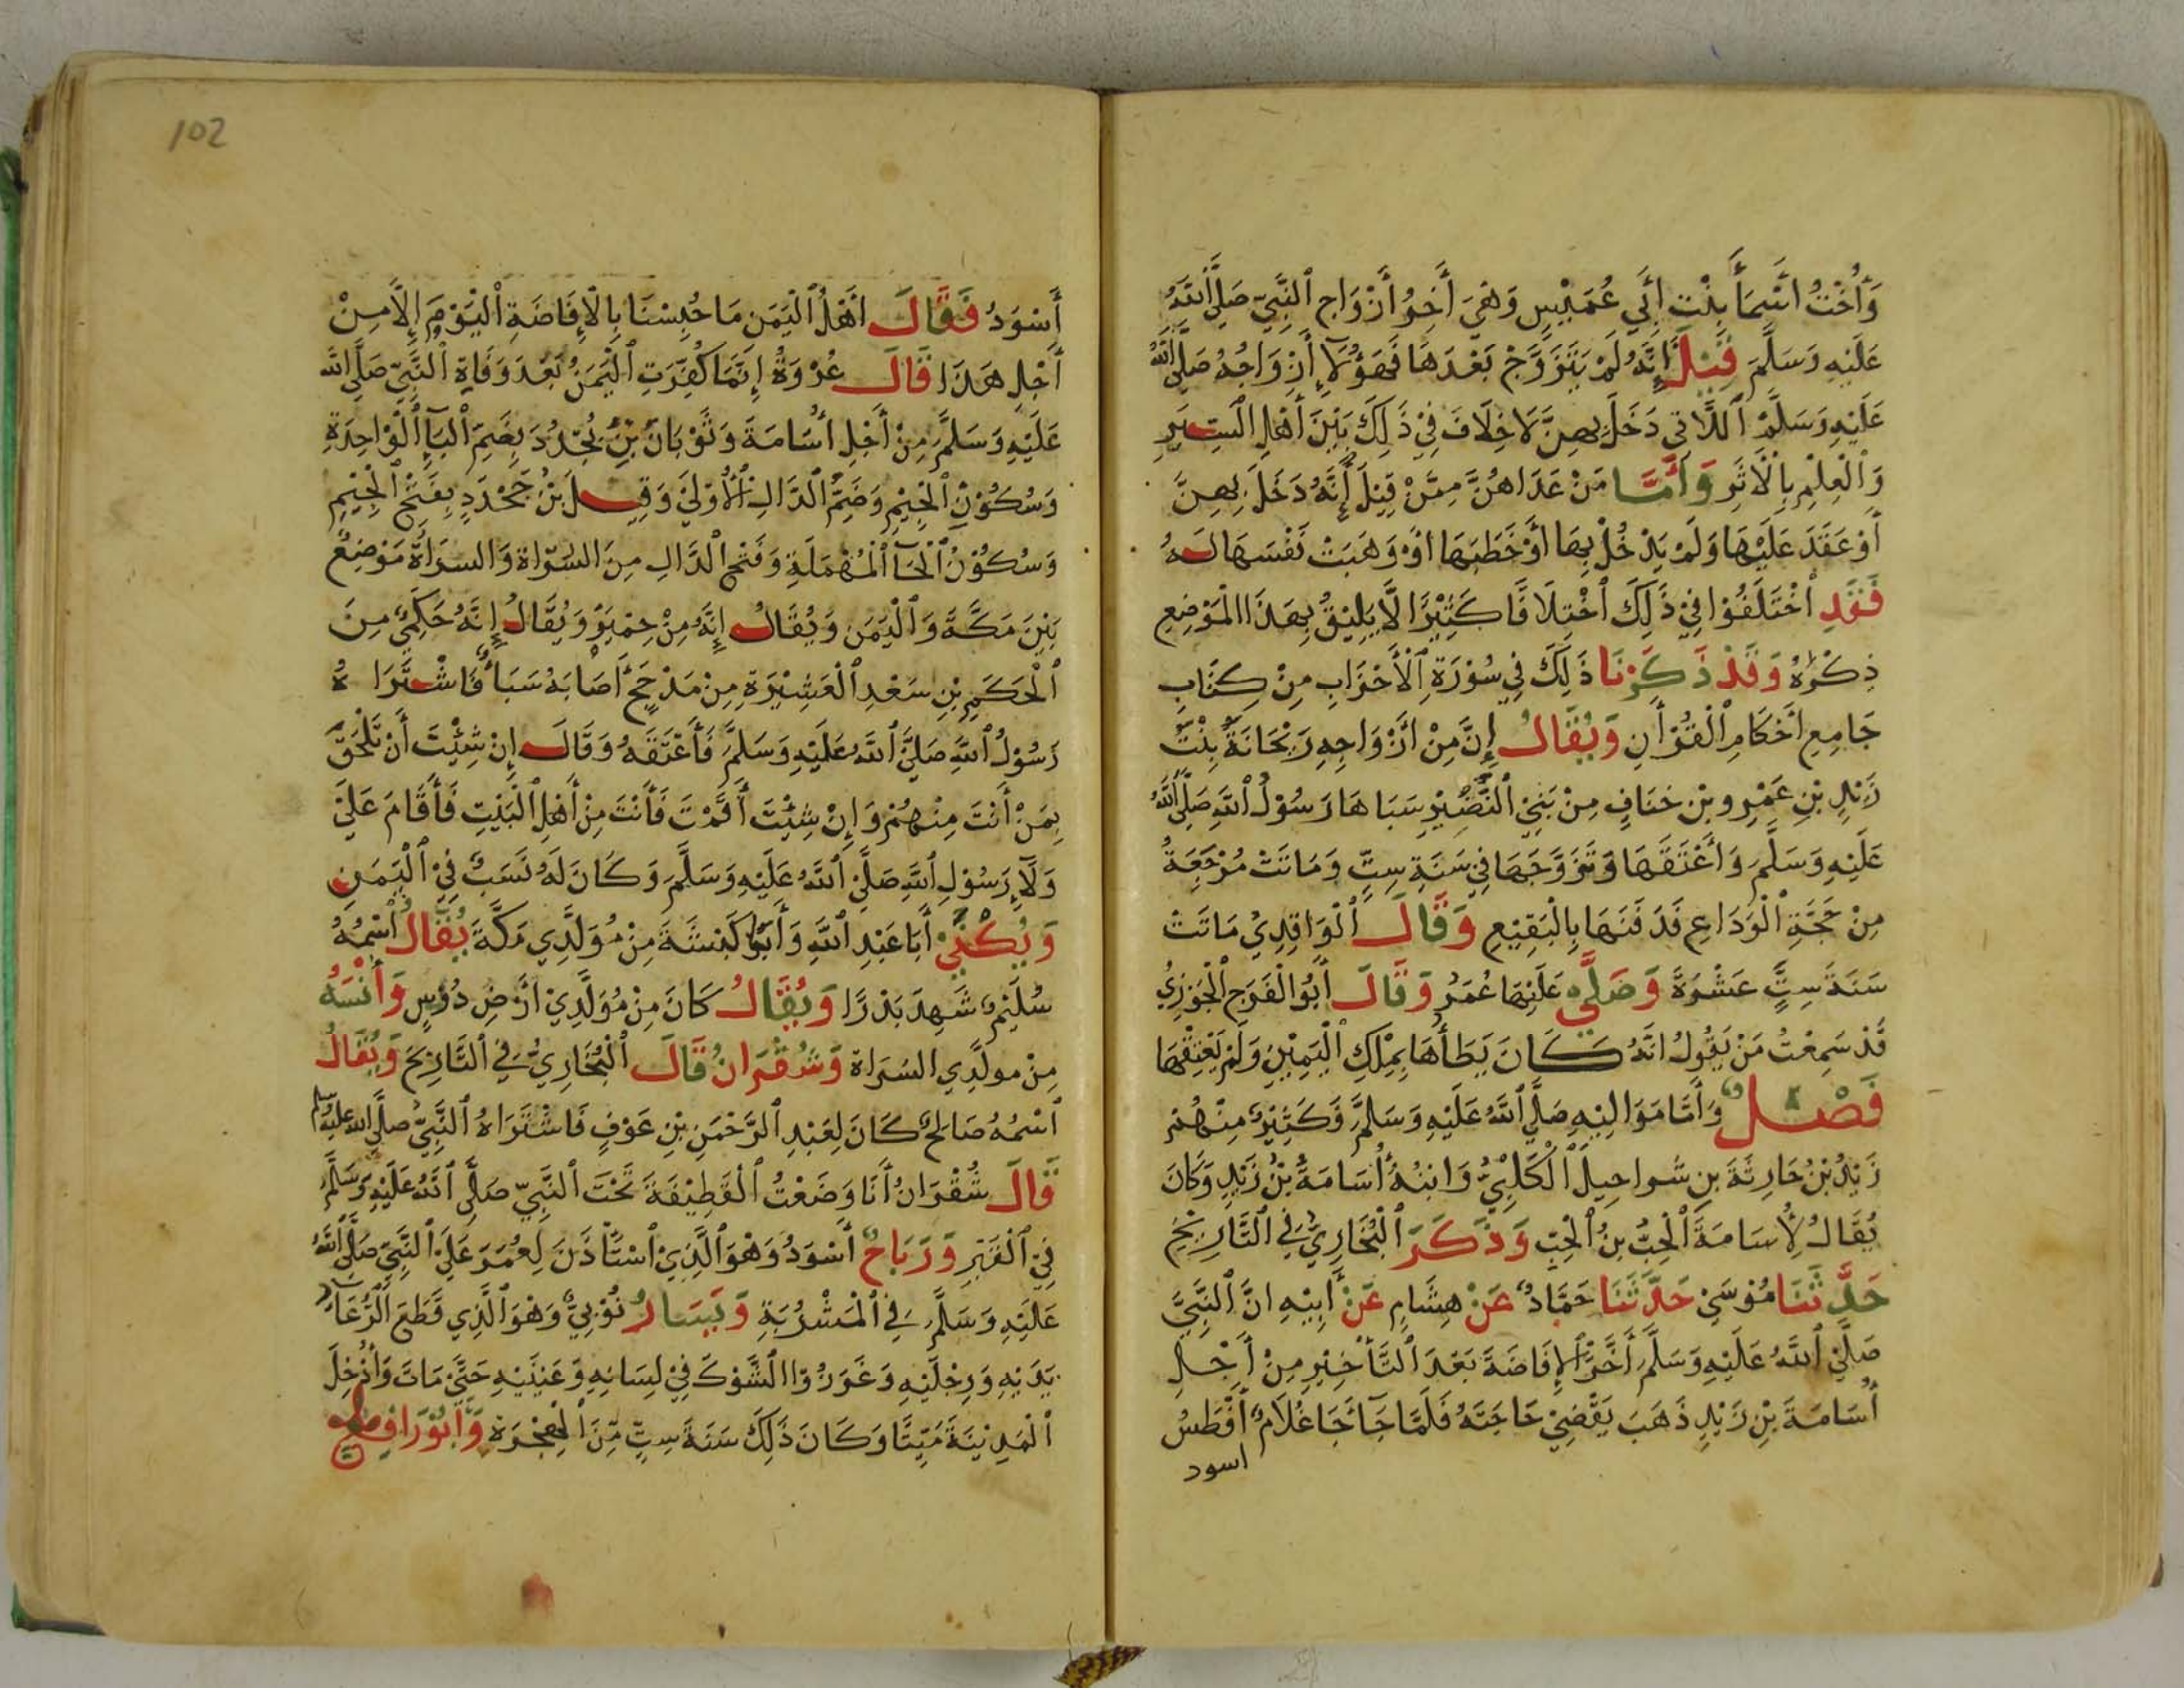 وَأُخْتُ اَسْمَأَ بِنْتِ ابِي عُمَيْسٍ وَهْيَ أَخِرُ أَزْوَاجِ ٱلنَّبِيّ صَلَّي ٱللَّهُ
عَلَيْهِ وَسَلَّمَ قِيْلَ إِنَّهُ لَمْ يَتَزَوَّجْ بَعْدَهَا فَهَؤُلَآءِ أَزْوَاجُهُ صَلَّي ٱللَّهُ
عَلَيْهِ وَسَلَّمْ اَللَّاتِي دَخَلَ بِهِنَّ لَا خِلَافَ فِيْ ذَلِكَ بَيْنَ أَهْلِ الْسِيَرِ
وَٱلْعِلْمِ بِالْأَثَرِ وَأَمَّا مَنْ عَدَاهُنَّ مِمَّنْ قِيْلَ إِنَّهُ دَخَلَ بِهِنَّ
أَوْ عَقَدَ عَلَيْهَا وَلَمْ يَدْخُلْ بِهَا اَوْ خَطَبَهَا اَوْ وَهَبَتْ نَفْسَهَا لَهُ
فَقَدِ اْخْتَلَفُوْا فِيْ ذَلِكَ ٱخْتِلَافًا كَثِيْرًا لَّا يَلِيْقُ بِهَذَا الْمَوْضِعِ
ذِكْرُهُ وَقَدْ ذَكَرْنَا ذَلِكَ فِي سُوْرَةِ ٱلْأَحْزَابِ مِنْ كِتَابِ
جَامِعِ اَحْكَامِ ٱلْقُرْأَنِ وَيُقَالُ إِنَّ مِنْ اَزْوَاجِهِ رَيْحَانَةُ بِنْتُ
زَيْدِ بْنِ عَمْرٍو بْنِ خنَافٍ مِنْ بَنِيْ ٱلنَّضِيْرِ سَبَاهَا رَسُوْلُ ٱللَّهِ صَلَّي ٱللَّهُ
عَلَيْهِ وَسَلَّمَ وَأَعْتَقَهَا وَتَزَوَّجَهَا فِي سَنَةِ سِتٍّ وَمَاتَتْ مُرْجَعَهُ
مِنْ حَجَّةِ ٱلْوَدَاعِ فَدَفَنَهَا بِالْبَقِيْعِ وَقَالَ ٱلْوَاقِدِيُ مَاتَتْ
سَنَةَ سِتٍّ عَشْرَةَ وَصَلَّي عَلَيْهَا عُمَرُ وَقَالَ أَبُو الْفَرَجِ ٱلْجَوْزِيُ
قَدْ سَمِعْتُ مَنْ يَقُولُ اَنَّهُ كَانَ يَطَأُهَا بِمِلْكِ ٱلْيَمِيْنِ وَلَمْ يَعْتِقْهَا
فَصْلٌ وَأَمَّا مَوَالِيْهِ صَلَّي ٱللَّهُ عَلَيْهِ وَسَلَّمَ فَكَثِيْرٌ مِنْهُمْ
زَيْدُ بْنُ حَارِثَةَ بن شواحِيلَ ٱلْكَلْبِيُّ وَابْنُهُ أُسَامَةُ بْنُ زَيْدٍ وَكَانَ
يُقَالُ لِأُسَامَةَ ٱلْحِبُّ بنُ الْحِبِّ وَذَكَرَ ٱلْبُخَارِيُّ فِي ٱلتَّارِيْخِ
حَدَّثَنَا مُوْسَيْ حَدَّثَنَا حَمَّادٌ عَنْ هِشَامٍ عَنْ أَبِيْهِ انَّ ٱلنَّبِيَّ
صَلَّيْ ٱللَّهُ عَلَيْهِ وَسَلَّمَ أَخَّرَ ٱلْإِفَاضَةَ بَعْدَ ٱلتَّأْخِيْرِ مِنْ أَجْلِ
أُسَامَةَ بْنِ زَيْدٍ ذَهَبَ يَقْضِيْ حَاجَتَهُ فَلَمَّا جَآءَ جَا غُلَامٌ أَفْطَسُ
اسود
102
أَسْوَدُ فَقَالَ اَهْلُ ٱلْيَمَنِ مَا حُبِسْنَا بِالْإِفَاضَةِ ٱلْيَوْمَ إِلَّا مِنْ
أَجْلِ هَذَا قَالَ عُرْوَةُ إِنَّمَا كَفَرَتِ ٱلْيَمَنُ بَعْدَ وَفَاةِ ٱلنَّبِيّ صَلَّي الله
عَلَيْهِ وَسَلَّمَ مِنْ أَجْلِ أُسَامَةَ وَثَوْبَانَ بْنِ بُجْدُدَ بِضَمِّ ٱلْبَآءِ ٱلْوَاحِدَةِ
وَسُكُوْنِ ٱلْجِيْمِ وَضَمِّ ٱلدَّالِ ٱلْأُوْلَيْ وَقِيلَ بْنُ جَحْدَدٍ بِفَتْحِ ٱلْجِيْمِ
وَسُكُوْنُ ٱلْحَآءِ ٱلْمُهْمَلَةِ وَفَتْحِ ٱلدَّالِ مِنَ السَّرَاةِ وَالسَرَاةُ مَوْضِعٌ
بَيْنَ مَكَّةَ وَٱلْيَمَنِ وَيُقَالُ إِنَّهُ مِنْ حِمْيَرٍ وَيُقَالُ إِنَّهُ حَكَمِيٌّ مِنَ
ٱلْحَكَمِ بْنِ سَعْدِ ٱلْعَشِيْرَةِ مِنْ مَذْحِجٍ أَصَابَهُ سَبَأٌ فَاشْتَرَاهُ
رَسُوْلُ ٱللَّهِ صَلَّيَ ٱللَّهُ عَلَيْهِ وَسَلَّمَ فَأَعْتَقَهُ وَقَالَ إِنْ شِئْتَ أَنْ تَلْحَقَ
بِمَنْ أَنْتَ مِنْهُمْ وَإِنْ شِئْتَ أَقَمْتَ فَأَنْتَ مِنْ أَهْلِ الْبَيْتِ فَأَقَامَ عَلَيْ
وَلَآءِ رَسُوْلِ ٱللَّهِ صَلَّيْ ٱللَّهُ عَلَيْهِ وَسَلَّمَ وَكَانَ لَهُ نَسَبٌ فِيْ ٱلْيَمَنِ
وَيُكْنَيْ أَبَا عَبْدِ ٱللَّهِ وَأَبُوْا كَبْشَةَ مِنْ مُوَلَّدِي مَكَّةَ يُقَالُ اْسْمُهُ
سُلَيْمٌ شَهِدَ بَدْرًا وَيُقَالُ كَانَ مِنْ مُوَلَّدِيْ اَرْضِ دُوْسٍ وَأَنْسَهُ
مِنْ مولَّدِي السَرَاة وَشُقْرَانُ قَالَ ٱلْبُخَارِيُّ فِي ٱلتَّارِيْخ وَيُقَالُ
ٱسْمُهُ صَالِحٌ كَانَ لِعَبْدِ ٱلرَّحْمَنِ بْنِ عَوْفٍ فَاشْتَرَاهُ ٱلنَّبِيُّ صلَّي الله عليه وسلم
قَالَ شُقْرَانُ أَنَا وَضَعْتُ ٱلْقَطِيْفَةَ تَحْتَ ٱلنَّبِيّ صَلَّي ٱللَّهُ عَلَيْهِ وَسَلَّمَ
فِيْ ٱلْقَبْرِ وَرَبَاحٌ أَسْوَدُ وَهْوَ ٱلَّذِيْ ٱسْتَأْذَنَ لِعُمَرَ عَلَيْ ٱلنَّبِيّ صَلَّي ٱللَّهُ
عَلَيْهِ وَسَلَّمَ فِي ٱلْمَشْرُبَةِ وَيَسَارُ نُوْبِيٌّ وَهْوَ ٱلَّذِي قَطَعَ ٱلرُّعَآءُ
يَدَيْهِ وَرِجْلَيْهِ وَغَرَزُوْا الْشَّوْكَ فِيْ لِسَانِهِ وَعَيْنَيْهِ حَتَّيْ مَاتَ وَأُدْخِلَ
ٱلْمَدِيْنَةَ مَيِّتًا وَكَانَ ذَلِكَ سَنَةَ سِتٍّ مِّنَ ٱلْهِجْرَةِ وَأَبُوْ رَافِعٍ